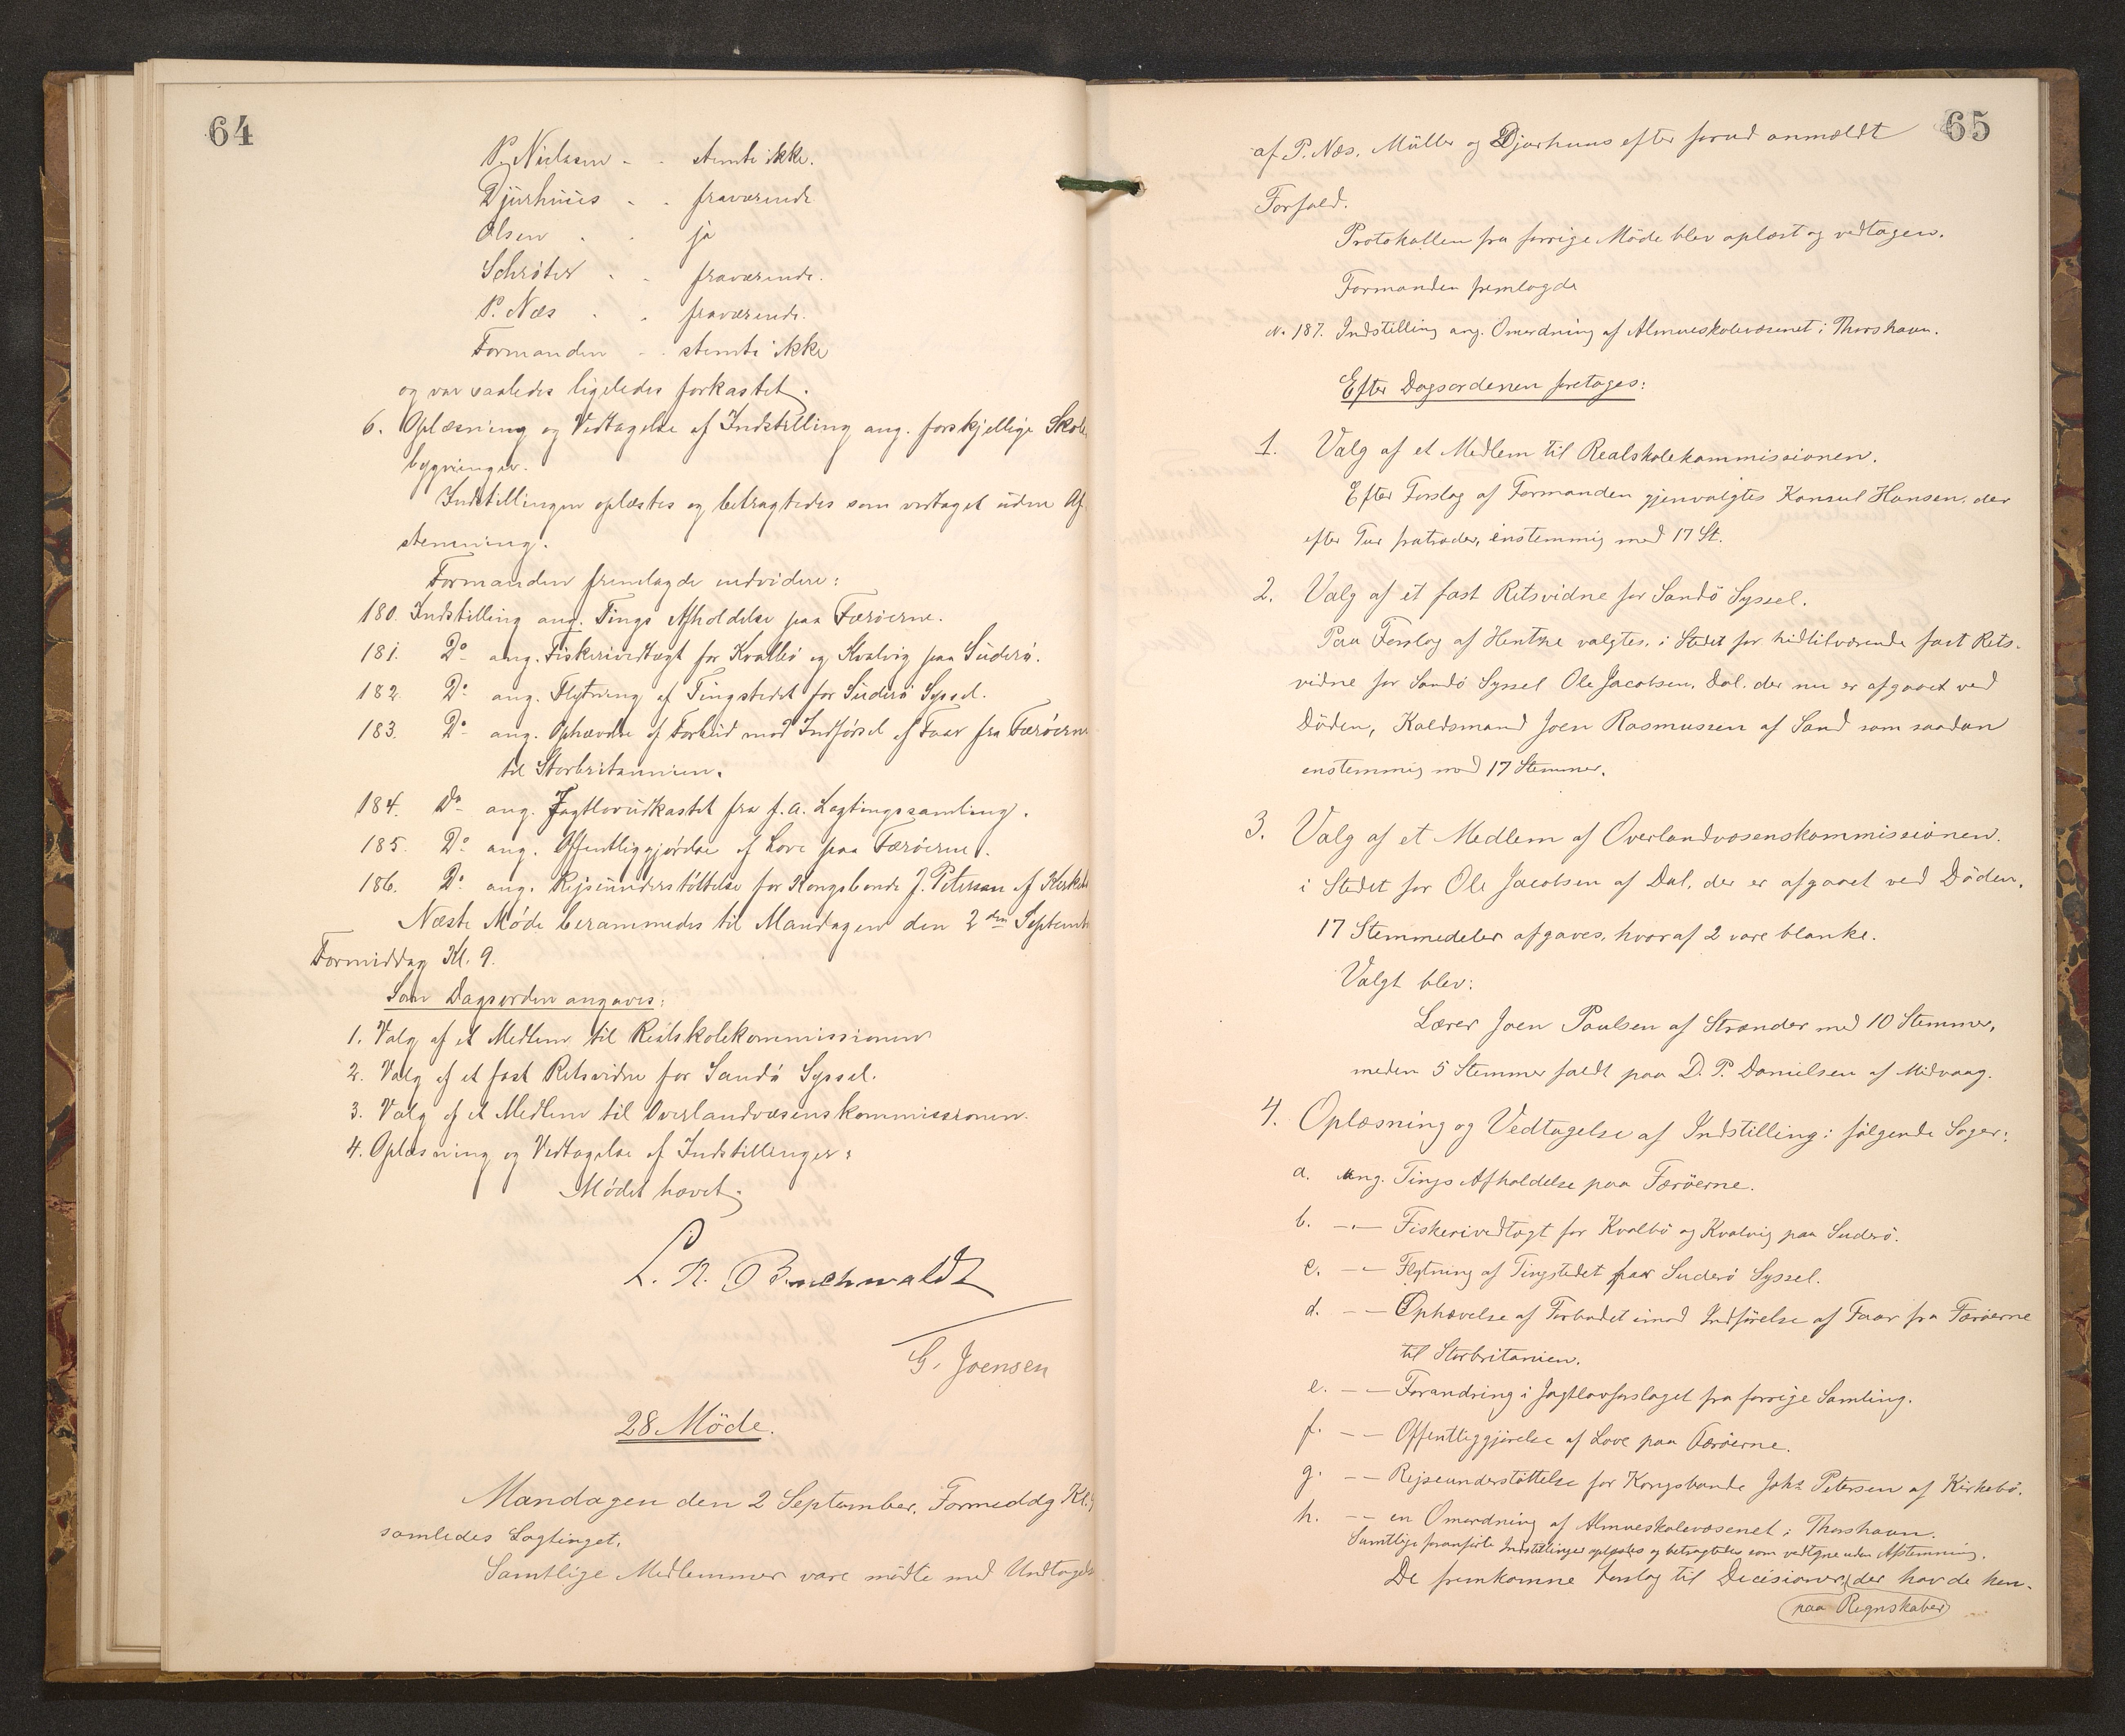 64
P. Nielsen - - stemte ikke.
Djurhuus - - fraværende
Olsen - - ja
Schrøter - - fraværende.
P. Næs - - fraværende.
Formanden - - stemte ikke
og var saaledes ligeledes forkastet.
6. Oplæsning og Vedtagelse af Indstilling ang. forskjellige Skole
bygninger.
Indstillingen oplæstes og betragtedes som vedtaget uden Af
stemning.
Formanden fremlagde endvidere:
180. Indstilling ang. Tings Afholdelse paa Færøerne.
181. Do ang. Fiskerivedtægt for Kvalbø og Kvalvig paa Suderø.
182. Do ang. Flytning af Tingstedet for Suderø Syssel.
183. Do ang. Ophævelse af Forbud mod Indførsel af Faar fra Færøerne
til Storbritannien.
184. Do ang. Jagtlovudkastet fra f. A. Lagtingssamling.
185. Do ang. Offentliggjørelse af Love paa Færøerne.
186. Do ang. Rejseunderstøttelse for Kongsbonde J. Petersen af Kirkeb
Næste Møde berammedes til Mandagen den 2den Septemb
Formiddag Kl. 9.
Som Dagsorden angaves:
1. Valg af et Medlem til Realskolekommissionen
2. Valg af et fast Retsvidne for Sandø Syssel.
3. Valg af et Medlem til Overlandvæsenskommissionen.
4. Oplæsning og Vedtagelse af Indstillinger:
Mødet hævet.
L. R. Buchwaldt
G. Joensen
28 Möde.
Mandagen den 2 September, Formiddg Kl. 9
samledes Lagtinget.
Samtlige Medlemmer vare mødte med Undtagelse
65
af P. Næs, Müller og Djurhuus efter forud anmældt
Forfald.
Protokollen fra forrige Möde blev oplæst og vedtagen.
Formanden fremlagde
N. 187. Indstilling ang. Omordning af Almueskolevæsenet i Thorshavn.
Efter Dagsordenen foretoges:
1. Valg af et Medlem til Realskolekommissionen.
Efter Forslag af Formanden gjenvalgtes Konsul Hansen, der
efter Tur fratræder, enstemmig med 17 St.
2. Valg af et fast Retsvidne for Sandö Syssel.
Paa Forslag af Hentze valgtes, i Stedet for hidtilværende fast Rets-
vidne for Sandö Syssel Ole Jacobsen, Dal. der nu er afgaaet ved
Döden, Kaldsmand Joen Rasmussen af Sand som saadan
enstemmig med 17 Stemmer.
3. Valg af et Medlem af Overlandvæsenskommissionen.
i Stedet for Ole Jacobsen af Dal, der er afgaaet ved Döden.
17 Stemmedeler afgaves, hvoraf 2 vare blanke.
Valgt blev:
Lærer Joen Poulsen af Strænder med 10 Stemmer,
meden 5 Stemmer faldt paa D. P. Danielsen af Midvaag.
4. Oplæsning og Vedtagelse af Indstilling i følgende Sager:
a. ang. Tings Afholdelse paa Færöerne.
b. -"- Fiskerivedtægt for Kvalbö og Kvalvig paa Suderö.
c. -- Flytning af Tingstedet for Suderö Syssel.
d. -- Ophævelse af Forbudet imod Indförelse af Faar fra Færöerne
til Storbritanien.
e. -- Forandring i Jagtlovforslaget fra forrige Samling.
f. -- Offentliggjörelse af Love paa Færöerne.
g. -- Rejseunderstöttelse for Kongsbonde Johs Petersen af Kirkebö.
h. -- en Omordning af Almueskolevæsenet i Thorshavn.
Samtlige foranførte Indstillinger oplæstes og betragtedes som vedtagne uden Afstemning.
De fremkomne Forslag til Decisioner, der havde hen-
paa Regnskaber